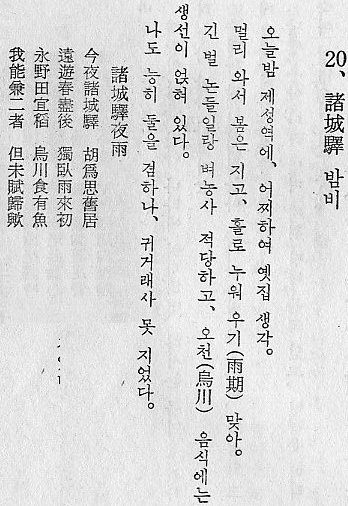 20、諸城驛 밤비
오늘밤 제성역에、어찌하여 옛집 생각。
멀리 와서 봄은 지고、홀로 누워 우기(雨期) 맞아。
긴 벌 논들일랑 벼농사 적당하고、오천(烏川) 음식에는
생선이 얹혀 있다。
나도 능히 둘을 겸하나、귀거래사 못 지었다。
諸城驛夜雨
今夜諸城驛 胡爲思舊居
遠遊春盡後 獨臥雨來初
永野田宜稻 烏川食有魚
我能兼二者 但未賦歸歟